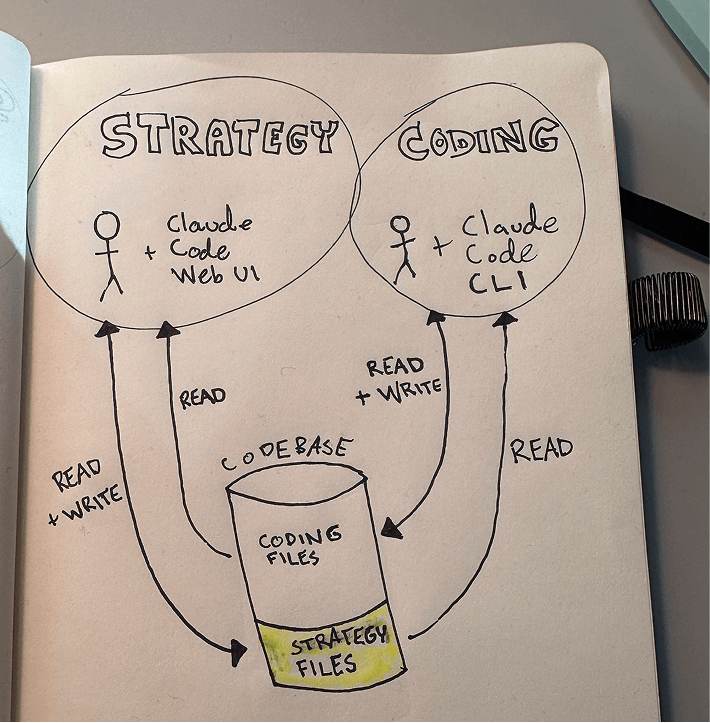 STRATEGY
+ Claude
Code
Web UI
CODING
+ Claude
Code
CLI
READ
+ WRITE
READ
READ
+ WRITE
READ
CODEBASE
CODING
FILES
STRATEGY
FILES